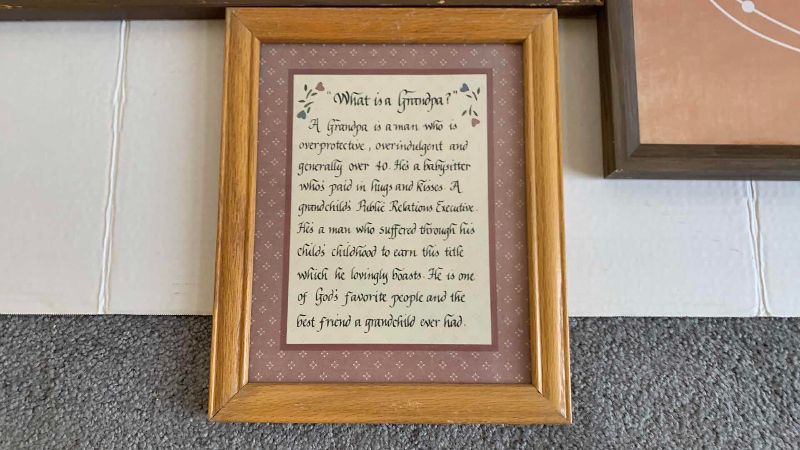 "What is a Grandpa?"
A Grandpa is a man who is
overprotective, overindulgent and
generally over 40. He's a babysitter
who's paid in hugs and kisses. A
grandchild's Public Relations Executive.
He's a man who suffered through his
child's childhood to earn this title
which he lovingly boasts. He is one
of God's favorite people and the
best friend a grandchild ever had.